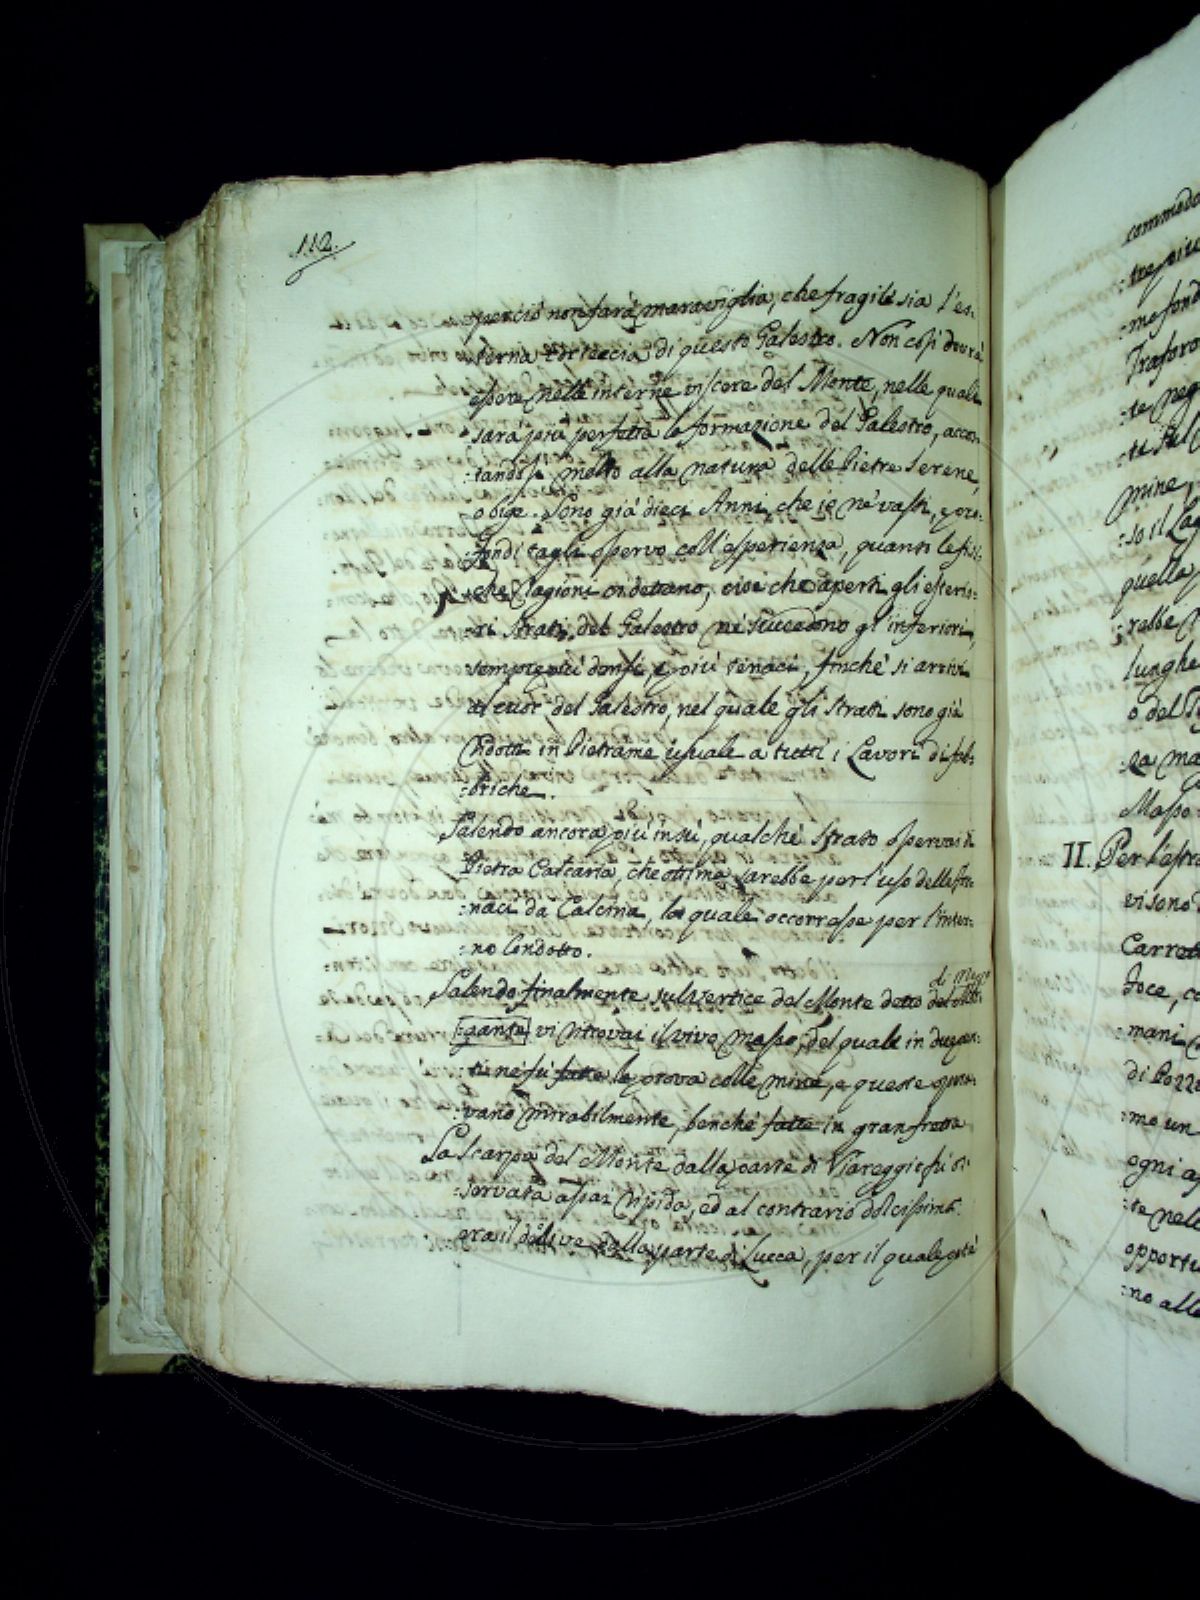 112.
perciò non farà maraviglia, che fragile sia l'es-
terna corteccia di questo Galestro. Non così dovrà
essere nelle interne viscere del Monte, nelle quale
sarà più perfetta la formazione del Galestro, accos-
tandosi molto alla natura delle Pietre Serene,
o bige. Sono già dieci Anni, che io ne' vasti, e pro-
:fondi tagli osservo coll'esperienza, quanto le fisi-
:che Ragioni ci dettano, cioè che aperti gli esterio-
:ri Strati del Galestro ne succedono gl'inferiori,
sempre più densi, e più tenaci, finchè si arrivi
al cuor del Galestro, nel quale gli Strati sono già
ridotti in Pietrame usuale a tutti i Lavori di fab-
:briche.
Salendo ancora più in sù, qualche Strato osservai di
Pietra Calcaria, che ottima sarebbe per l'uso delle For-
:naci da Calcina, la quale occorresse per l'inter-
:no Condotto.
Salendo finalmente sul Vertice del Monte detto del
di Mezo
:gante vi ritrovai il vivo Masso, del quale in
:ti ne fù fatte le prova colle mine, e queste opera-
:vano mirabilmente, benchè fatte in gran fretta
La Scarpa del Monte dalla parte di Viareggio fù os-
:servata assai ripida, ed al contrario dolcissimo
era il declive dalla parte di Lucca, per il quale
commodo
:tre più
:me fond
Traforo
:te neg
mine,
:so il Lag
quella
:rebbe
lunghe
o del
:za ma
Masso
II. Per l'estra
vi sono
Carrett
foce, co
:mani
di Pozz
:mo un
ogni
:te nell
opportu
:no alle